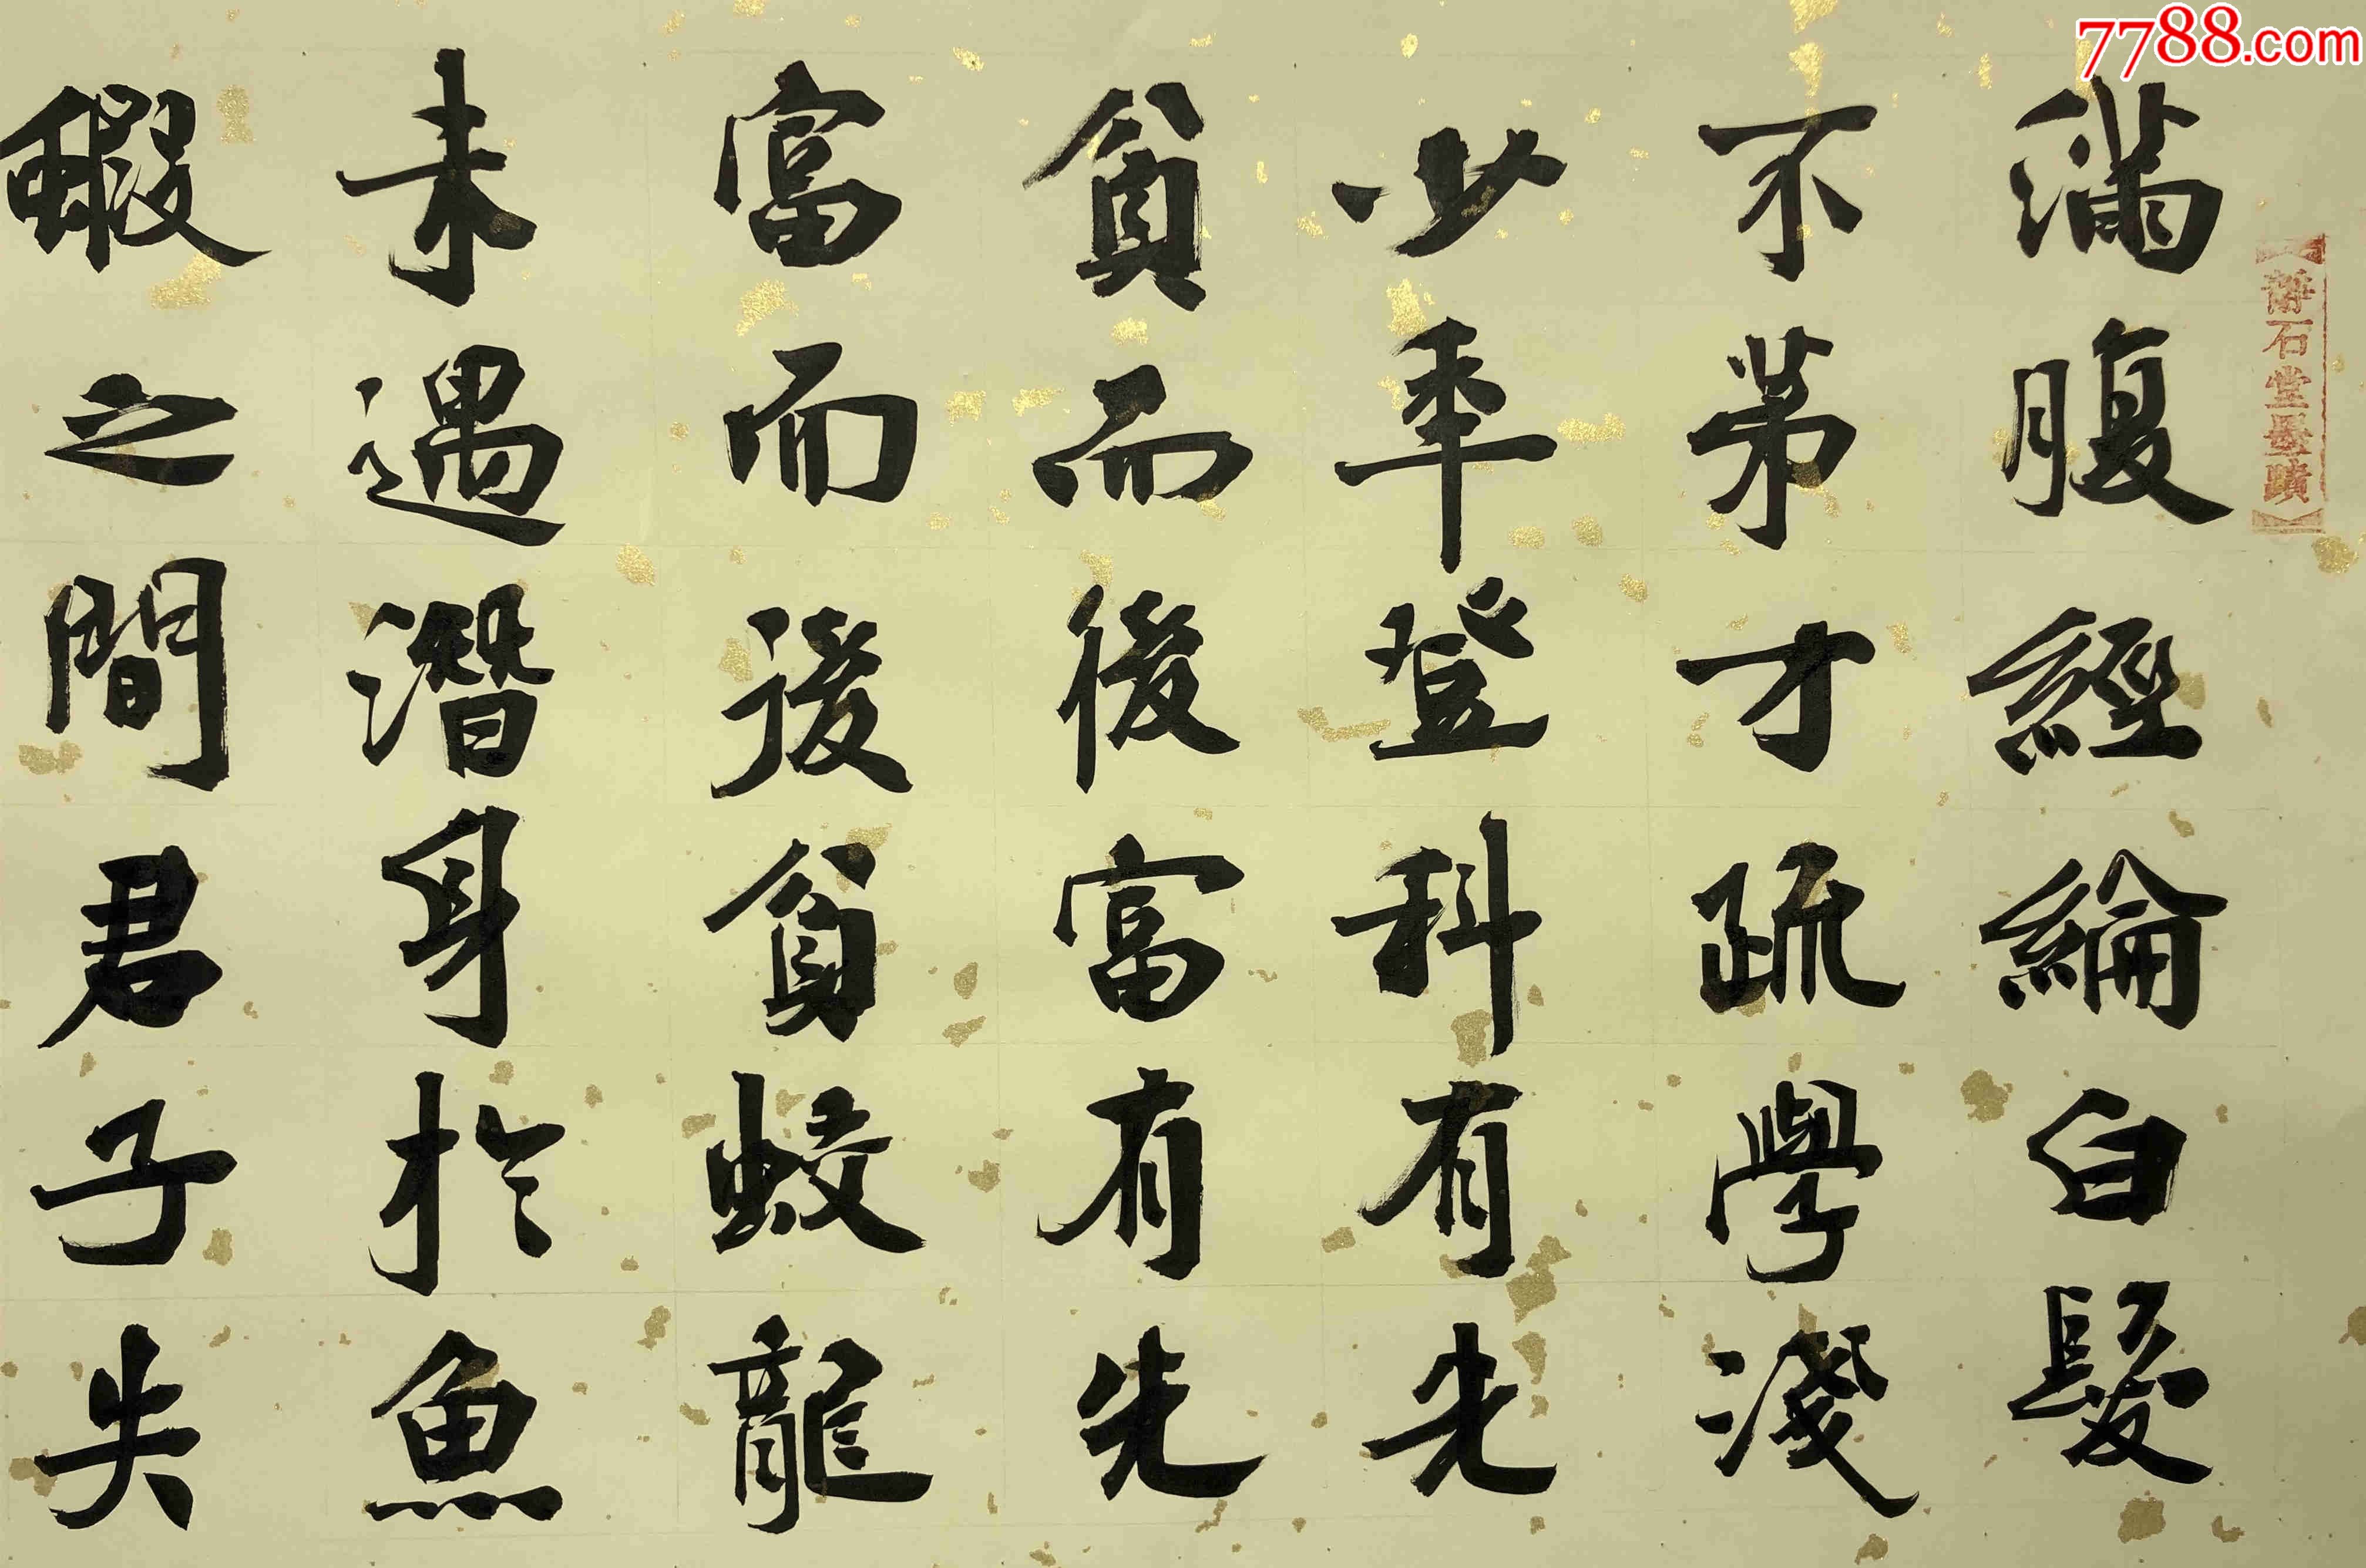 7788.com
石堂墨蹟
滿腹經綸白髮
不第才疏學淺
少年登科有先
貧而後富有先
富而後貧蛟龍
未遇潛身於魚
蝦之間君子失